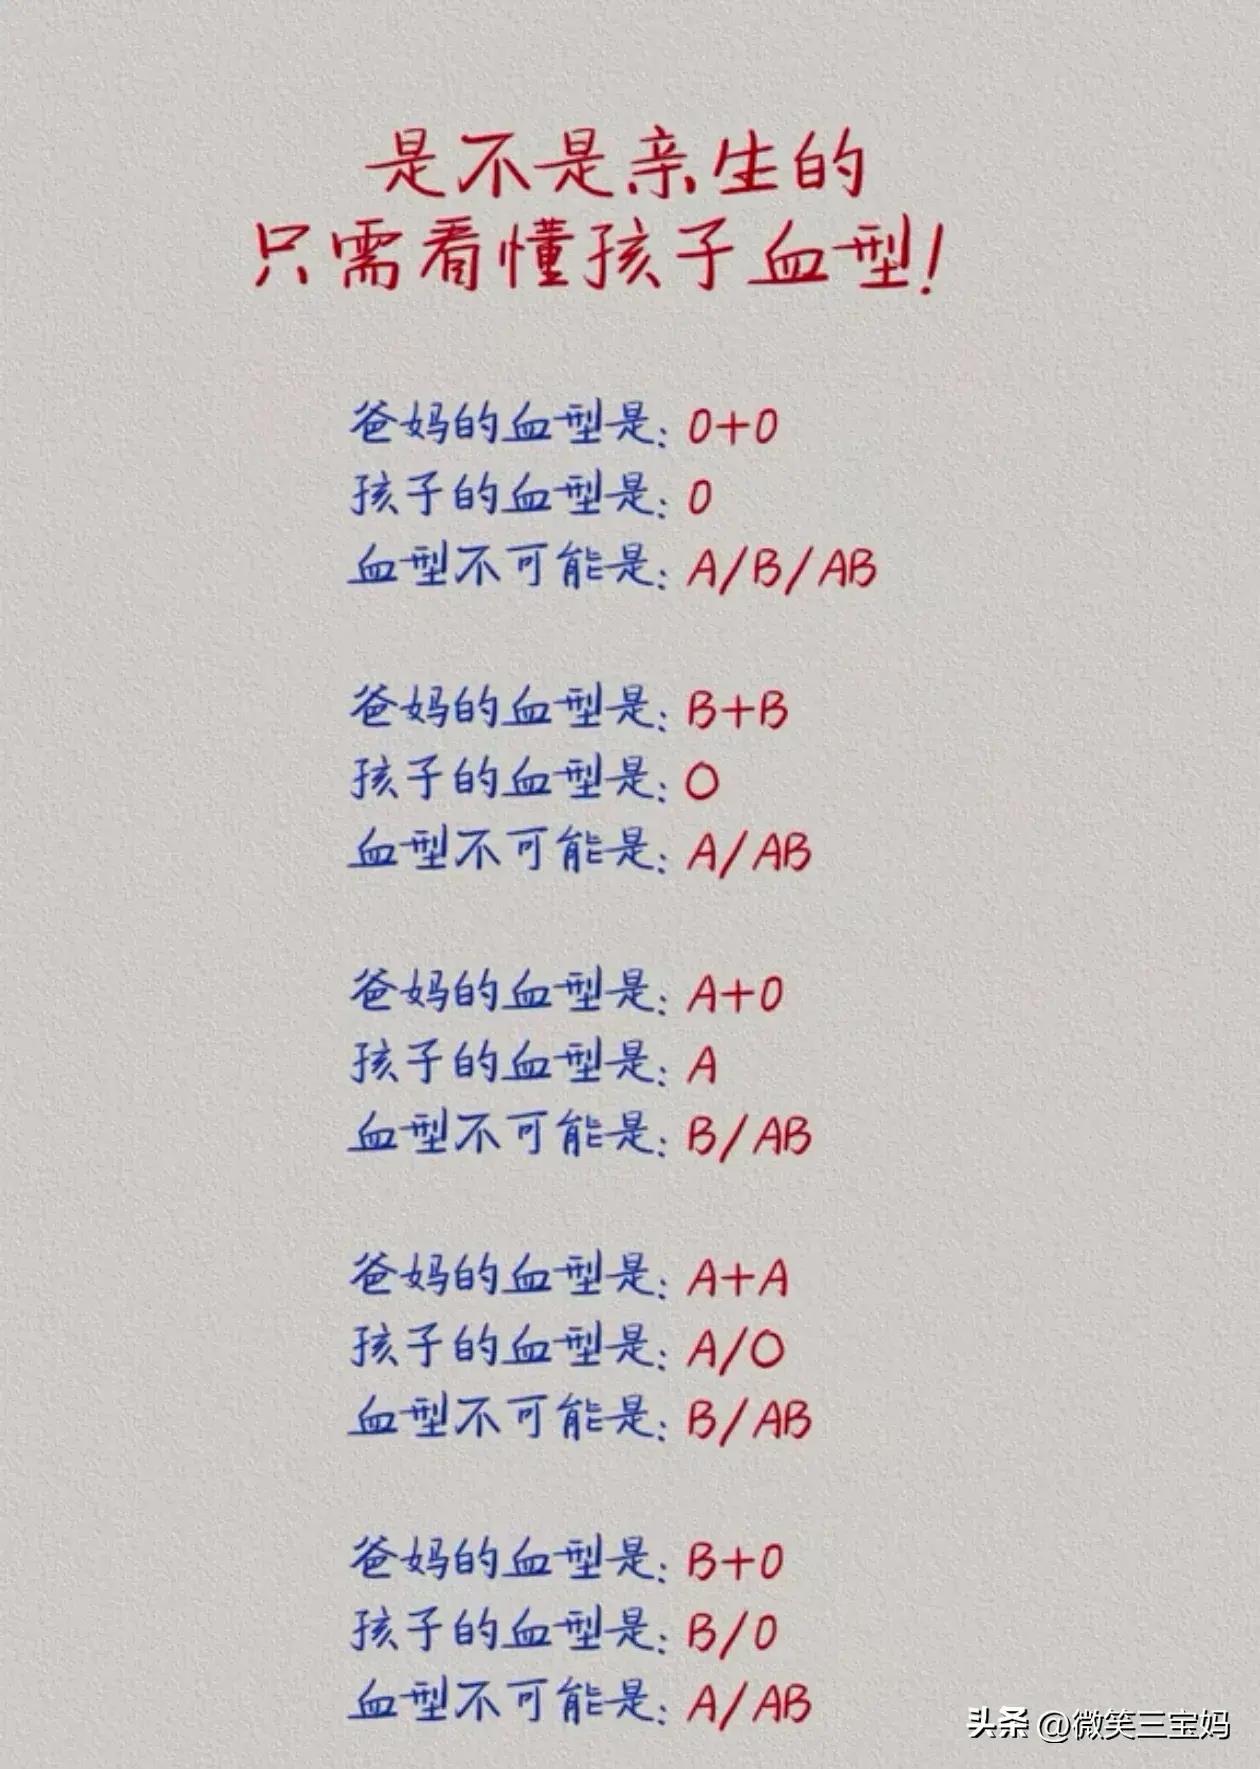 是不是亲生的
只需看懂孩子血型!
爸妈的血型是: O+O
孩子的血型是: O
血型不可能是: A/B/AB
爸妈的血型是: B+B
孩子的血型是: O
血型不可能是: A/AB
爸妈的血型是: A+O
孩子的血型是: A
血型不可能是: B/AB
爸妈的血型是: A+A
孩子的血型是: A/O
血型不可能是: B/AB
爸妈的血型是: B+O
孩子的血型是: B/O
血型不可能是: A/AB
头条 @微笑三宝妈